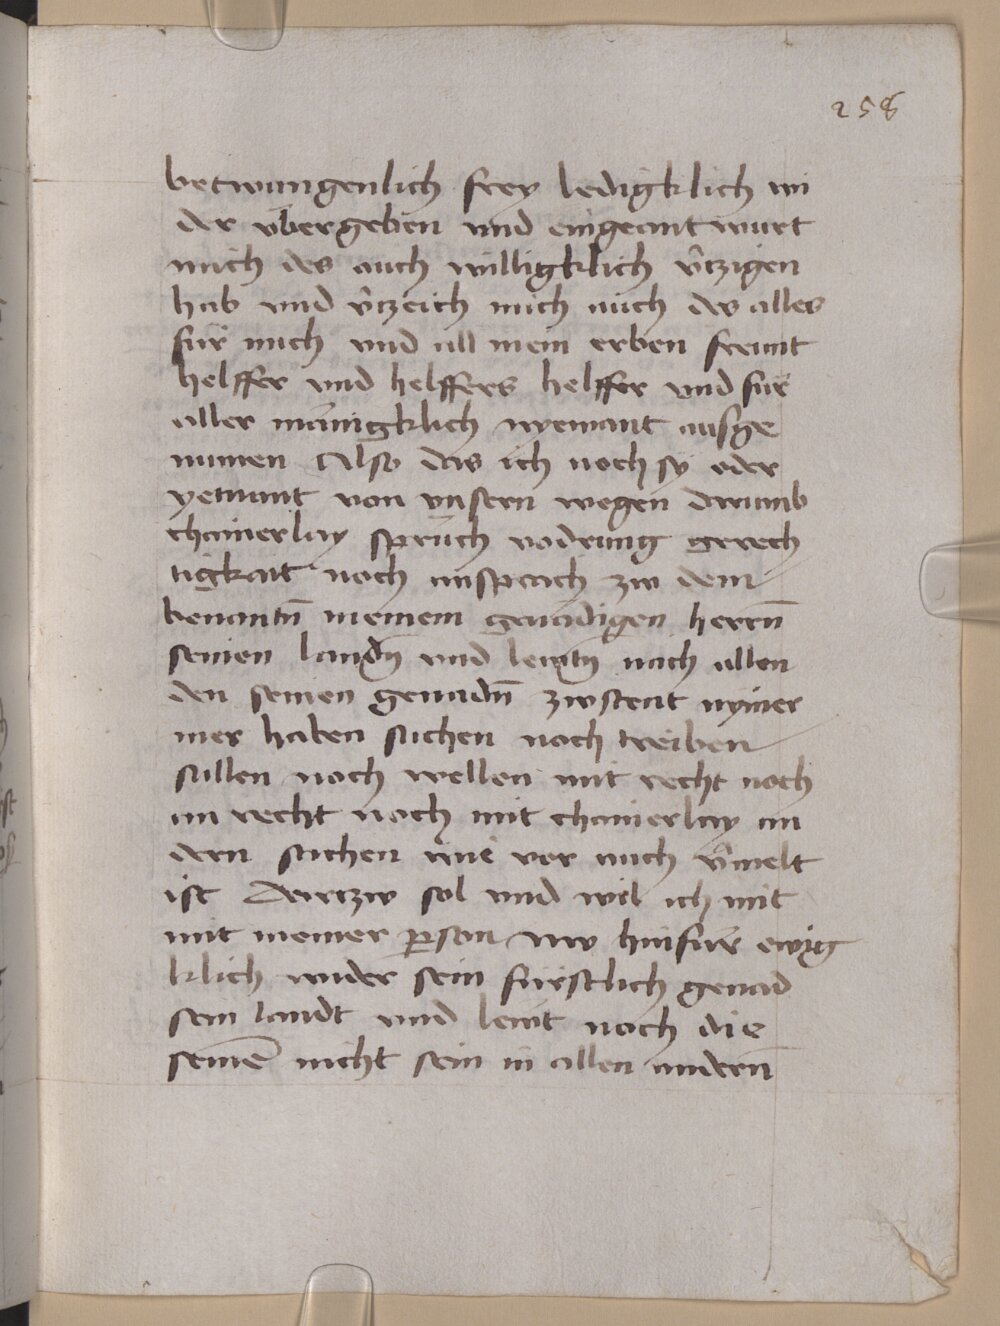 258
betwungenlich frey ledigklich wi
der vbergeben vnd eingeantwurt
mich des auch willigklich v̂tzigen
hab vnd v̂tzeich mich auch des alles
für mich vnd all mein erben freunt
helffer vnd helffers helffer vnd für
aller mänigklich nyemant ausge
numen Also das ich noch sy oder
yemant von vnsern wegen darumb
chainerlay sprüch vodrung gerech
tigkait noch ansprach zw dem
benantn̄ meinem genädigen herrn̄
seinen landn̄ vnd lewtn̄ auch allen
den seinen genadn̄ zwstent nymer
mer haben suchen noch treiben
sullen noch wellen mit recht noch
an recht noch mit chainerlay an
dern sachen wie vor auch v̂melt
ist Dartzw sol vnd wil ich mit
mit meiner ꝑson nw hinfür ewig
klich wider sein fürstlich genad
sein landt vnd lewt noch die
seinē nicht sein in allen andern̄